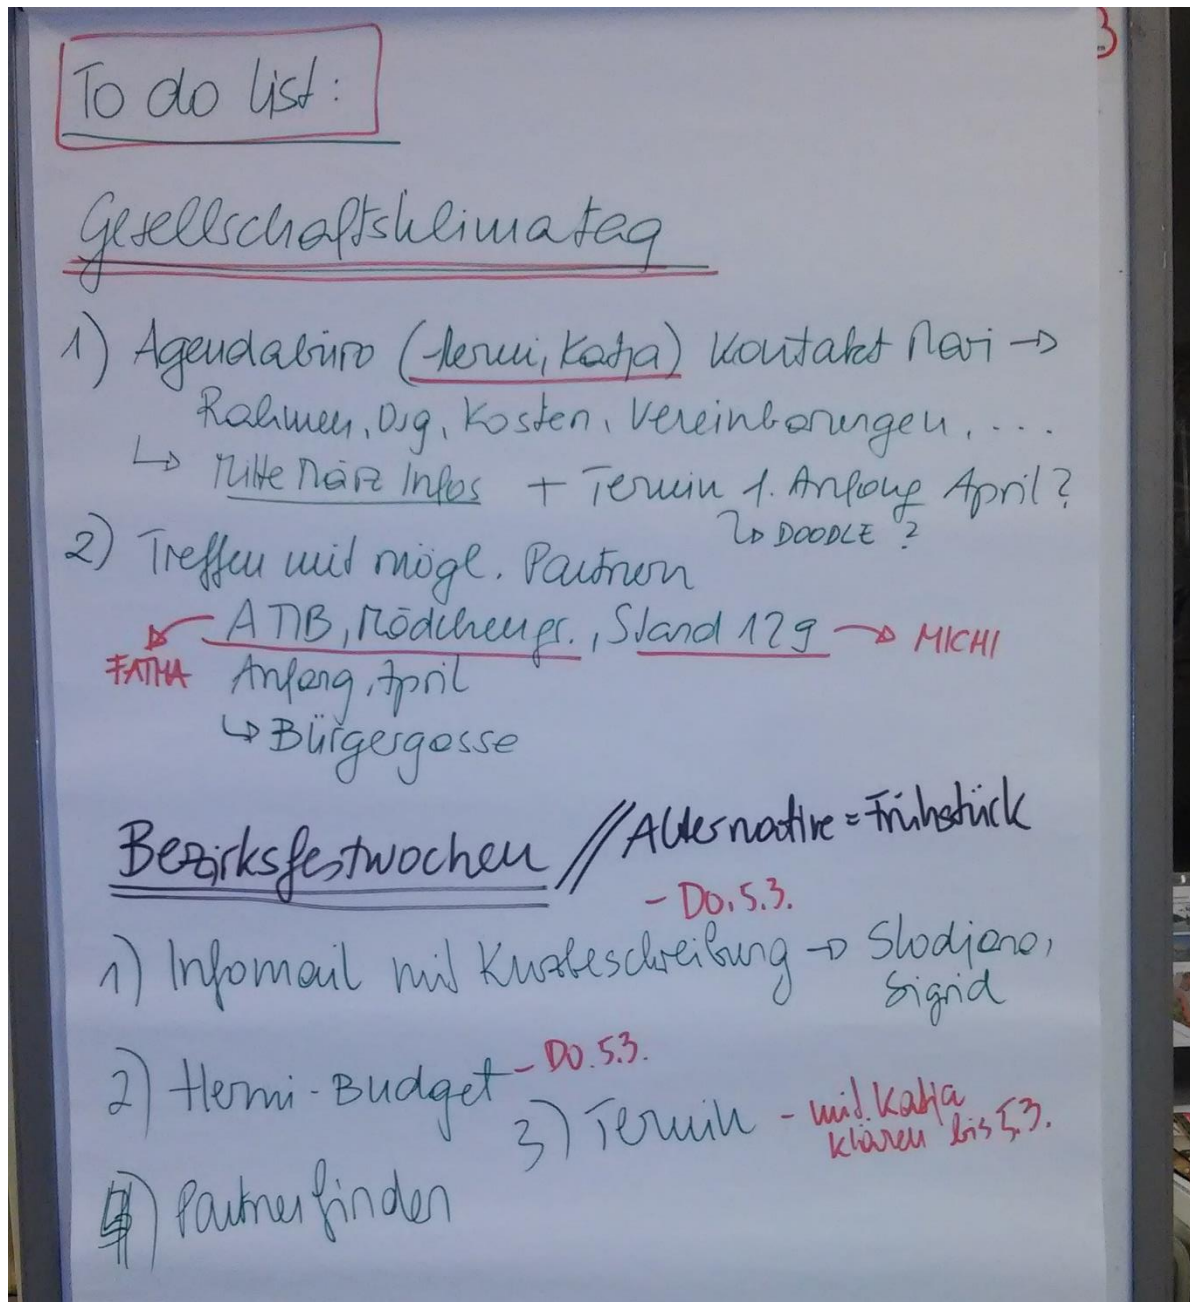 To do list:
Gesellschaftsklimatag
1) Agendabüro (Hermi, Katja) Kontakt Mari →
Rahmen, Org, Kosten, Vereinbarungen, ...
↳ Mitte März Infos + Termin 1. Anfang April?
↳ DOODLE ?
2) Treffen mit mögl. Partnern
ATIB, Mädchengr., Stand 129 → MICHI
FATMA Anfang, April
↳ Bürgergasse
Bezirksfestwochen // Alternative = Frühstück
- Do. 5.3.
1) Infomail mit Kurzbeschreibung → Slodjana,
Sigrid
2) Hermi - Budget - DO. 5.3.
3) Termin - mit Katja
klären bis 5.3.
4) Partner finden